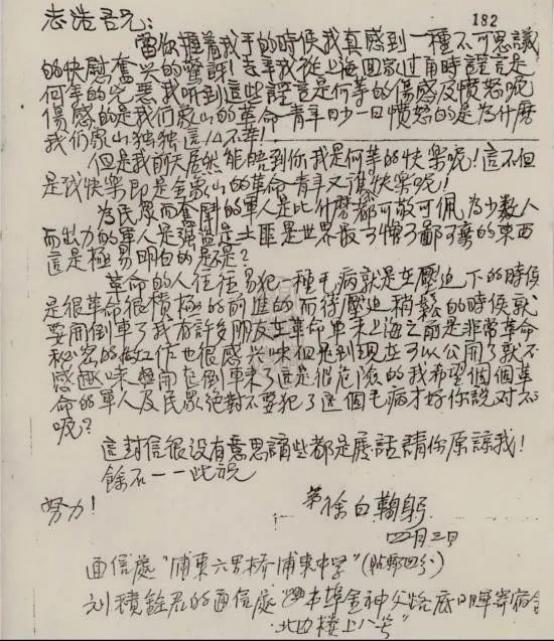 182
志浩吾兄：
當你握着我手的時候我真感到一種不可思議
的快慰奮兴的驚訝！去年我從上海回家过甬時謠言是
何等的兇惡我听到這些謠言是何等的傷感及憤怒呢
傷感的是我们象山的革命青年日少一日憤怒的是為什麼
我们象山独独這么不幸！
但是我前天居然能晤到你我是何等的快樂呢！這不但
是我快樂即是全象山的革命青年又誰快樂呢！
為民眾而奮鬥的軍人是比什麼都可敬可佩為少數人
而出力的軍人是強盜是土匪是世界最可憐可鄙可棄的東西
這是極易明白的是不是？
革命的人往往易犯一種毛病就是在壓迫下的時候
是很革命很積極的前進的而待壓迫稍鬆的時候就
要開倒車了我有許多朋友在革命軍未上海之前是非常革命
秘密的做工作也很感兴味但是到現在可以公開了就不
感趣味與開起倒車來了這是很危险的我希望個個革
命的軍人及民眾絕對不要犯了這個毛病才好你說对不
呢？
這封信很没有意思講些都是廢話請你原諒我！
餘不一一此祝
努力！
弟徐白鞠躬
四月三日
通信處“浦東六里桥浦東中学”
刘積銓君的通信處“本埠金神父路底日暉寄宿舍
北四樓上八号”